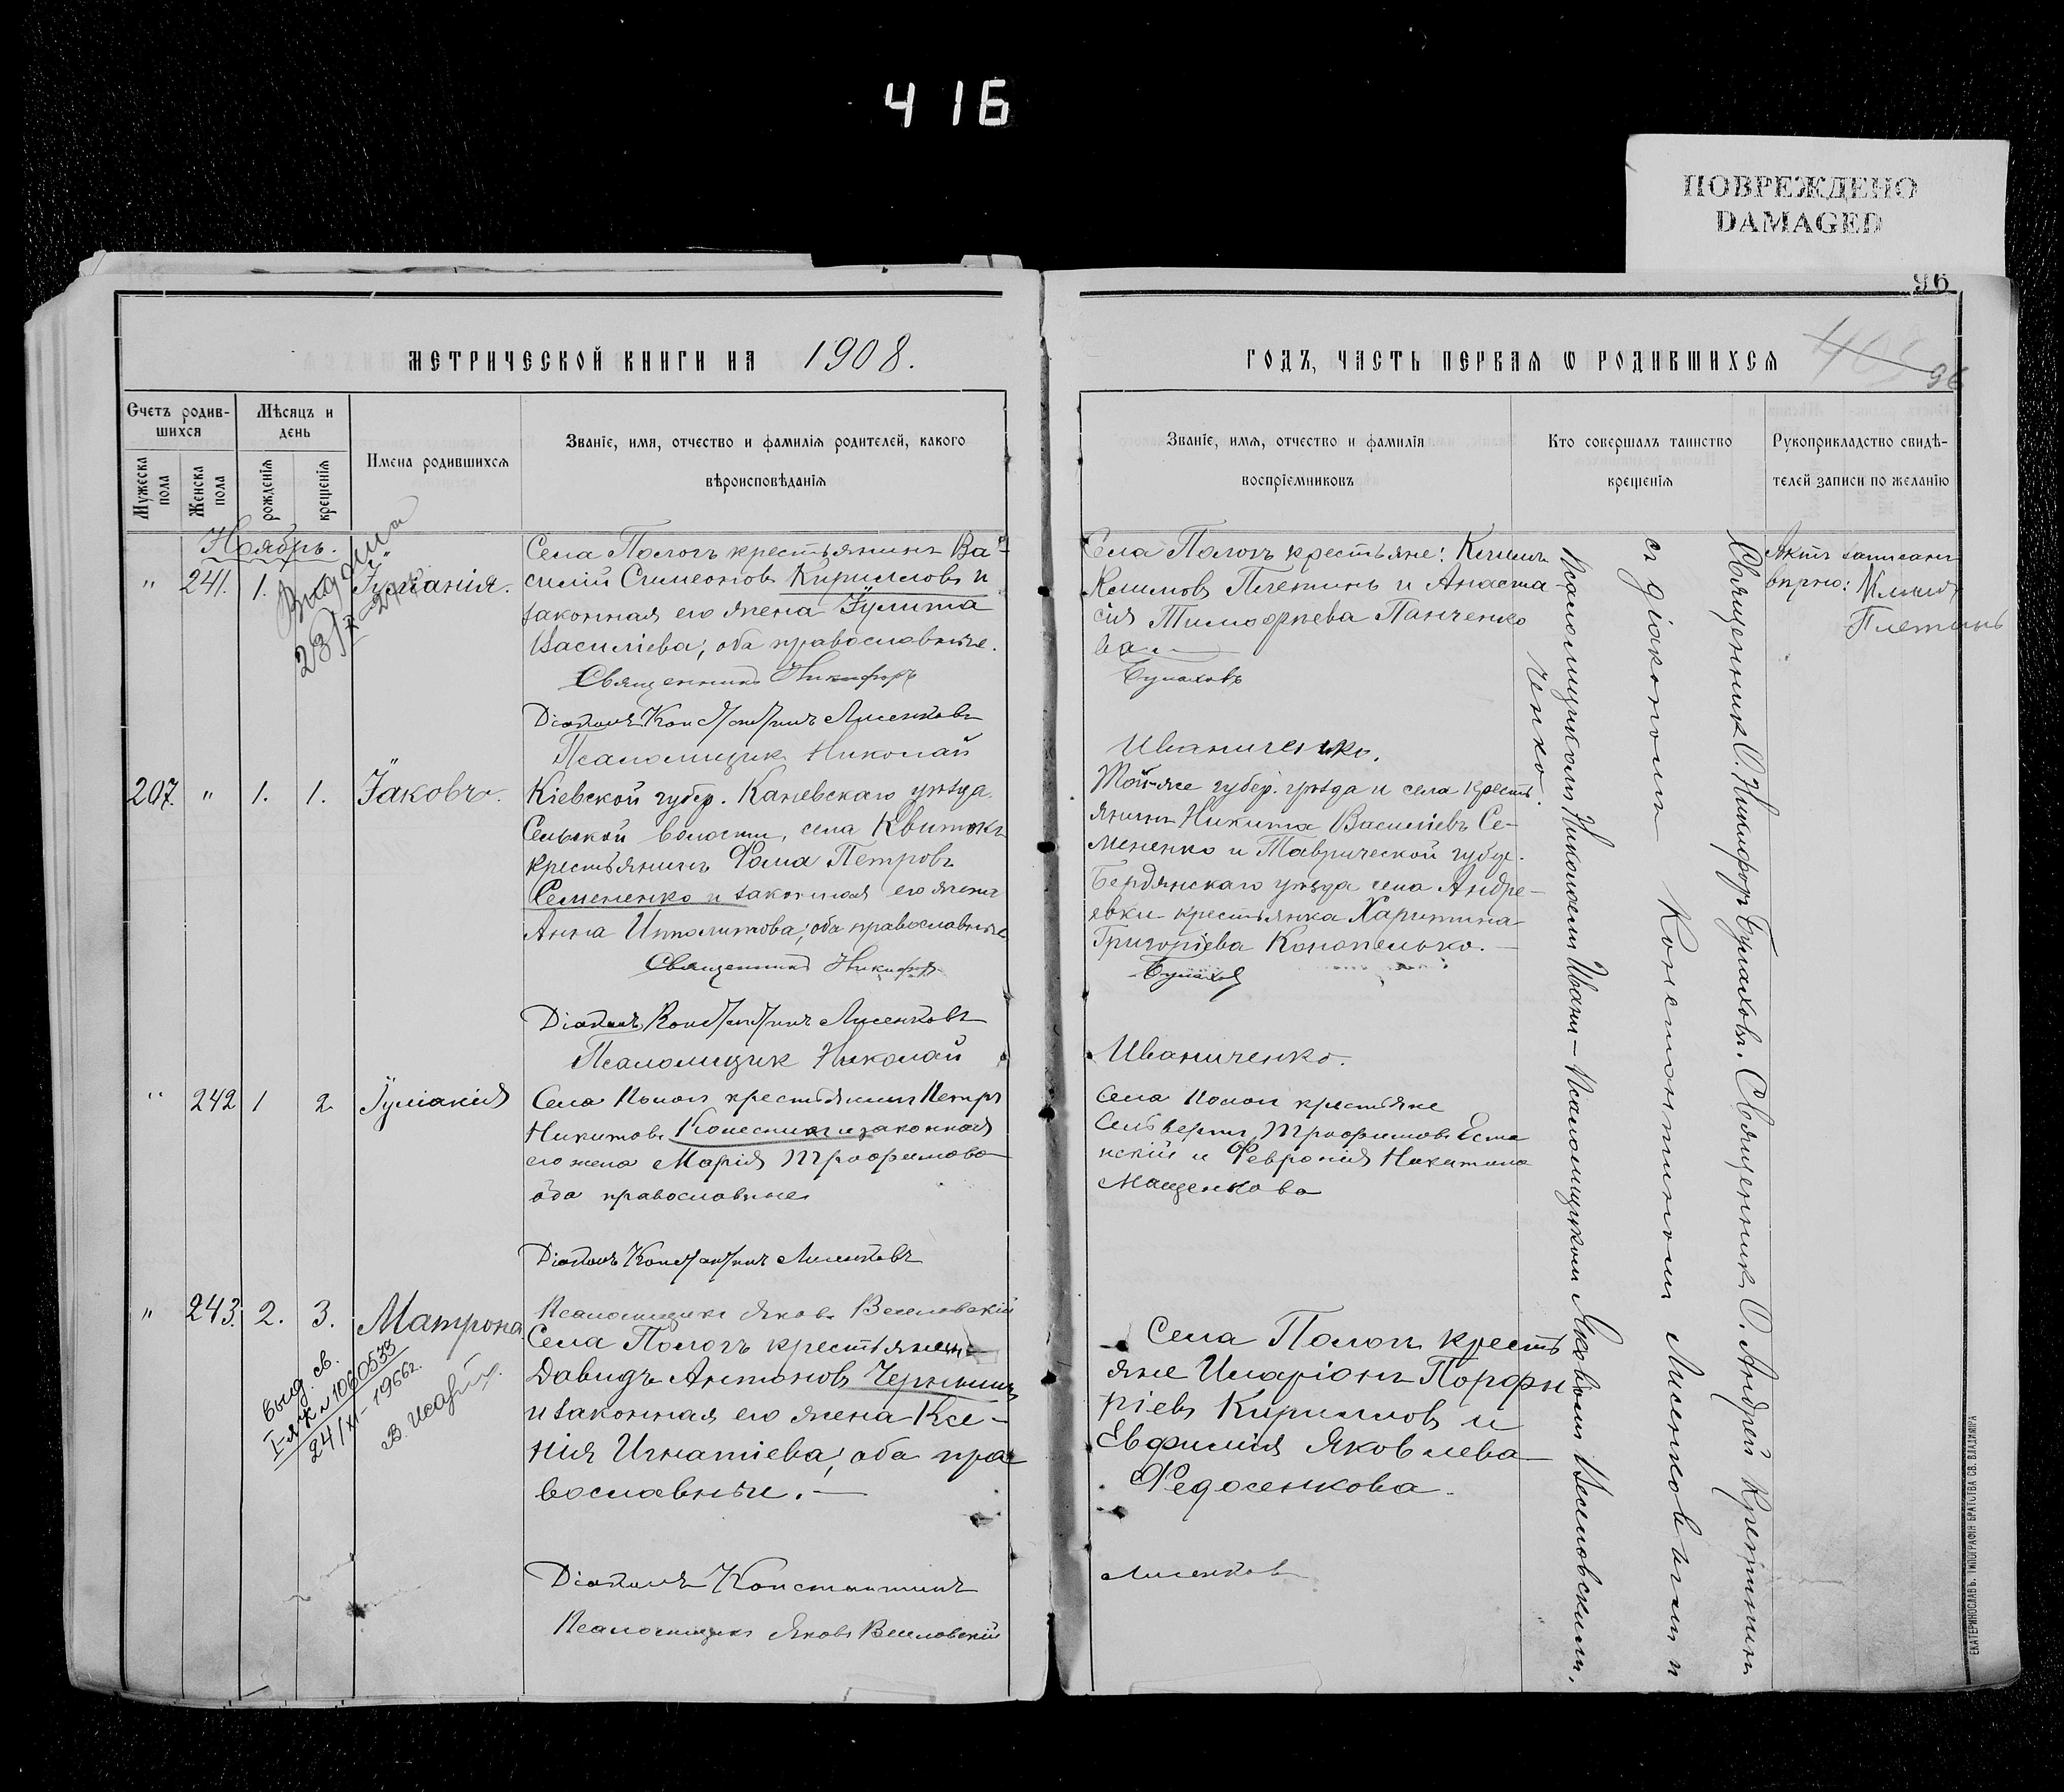 416
ПОВРЕЖДЕНО
DAMAGED
96
МЕТРИЧЕСКОЙ КНИГИ НА 1908.
Счетъ родив-
шихся
Мѣсяцъ и
день
Мужеска пола
Женска пола
рожденія
крещенія
Имена родившихся
Званіе, имя, отчество и фамилія родителей, какого
вѣроисповѣданія
Ноябрь.
" 241. 1.
Выдана
Іуліанія.
Села Пологъ крестьянинъ Ва-
силій Симеоновъ Кирилловъ и
законная его жена Іулита
Василіева; оба православные.
Священникъ Никифоръ
Діаконъ Константинъ Лисенковъ
Псаломщикъ Николай
207. " 1. 1. Іаковъ.
Кіевской губер. Каневскаго уѣзда
волости, села Квитокъ
крестьянинъ Фома Петровъ
Семененко и законная его жена
Анна Ипполитова; оба православные
Священникъ Никифоръ
Діаконъ Константинъ Лисенковъ
Псаломщикъ Николай
" 242 1 2 Іуліанія
Села Пологъ крестьянинъ Петръ
Никитовъ Колесникъ и законная
его жена Марія Трофимова
оба православные
Діаконъ Константинъ Лисенковъ
Псаломщикъ Яковъ Веселовскій
" 243. 2. 3. Матрона
выд. св.
I-ЯК № 1060533
24/XI-1966г.
Села Пологъ крестьянинъ
Давидъ Антоновъ
и законная его жена Ксе-
нія Игнатіева; оба пра
вославные.
Діаконъ Константинъ
Псаломщикъ Яковъ Веселовскій
ГОДЪ, ЧАСТЬ ПЕРВАЯ Ѡ РОДИВШИХСЯ
96
Званіе, имя, отчество и фамилія
воспріемниковъ
Кто совершалъ таинство
крещенія
Рукоприкладство свидѣ-
телей записи по желанію
Села Пологъ крестьяне: Климъ
Климовъ Плетинь и Анаста
сія Тимофеева Панченко
ва
Булаховъ
Иваниченко.
Той-же губер. уѣзда и села кресть
янинъ Никита Василіевъ Се-
мененко и Таврической губер.
Бердянскаго уѣзда села Андре-
евки крестьянка Харитина
Григоріева Конопелько.
Булаховъ
Иваниченко.
Села Пологъ крестьяне
Сильвестръ Трофимовъ
и Февронія Никитина
Мащенкова
Села Пологъ кресть
яне Иларіонъ Порфи
ріевъ Кирилловъ и
Евфимія Яковлева
Федосенкова.
Лисенковъ
Священникъ О. Никифоръ Булаховъ. Священникъ О. Андрей
съ діакономъ Константиномъ Лисенковымъ и
Псаломщикомъ Николаемъ Ивани- Псаломщикомъ Яковомъ Веселовскимъ.
ченко.
Актъ записанъ
вѣрно: Климъ
Плетинь
ЕКАТЕРИНОСЛАВЪ. ТИПОГРАФІЯ БРАТСТВА СВ. ВЛАДИМІРА